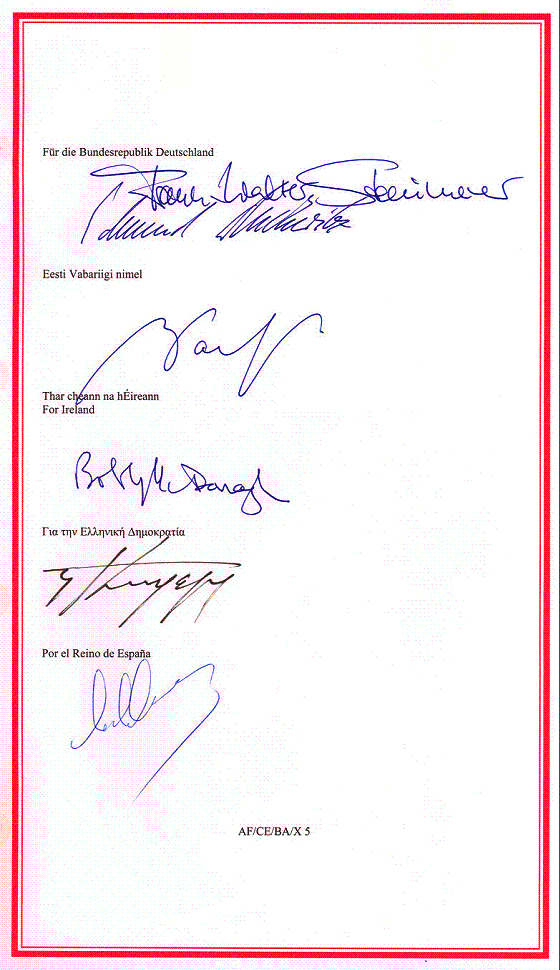 Für die Bundesrepublik Deutschland
Frank-Walter Steinmeier
Eesti Vabariigi nimel
Thar cheann na hÉireann
For Ireland
Bobby McDonagh
Για την Ελληνική Δημοκρατία
Por el Reino de España
AF/CE/BA/X 5